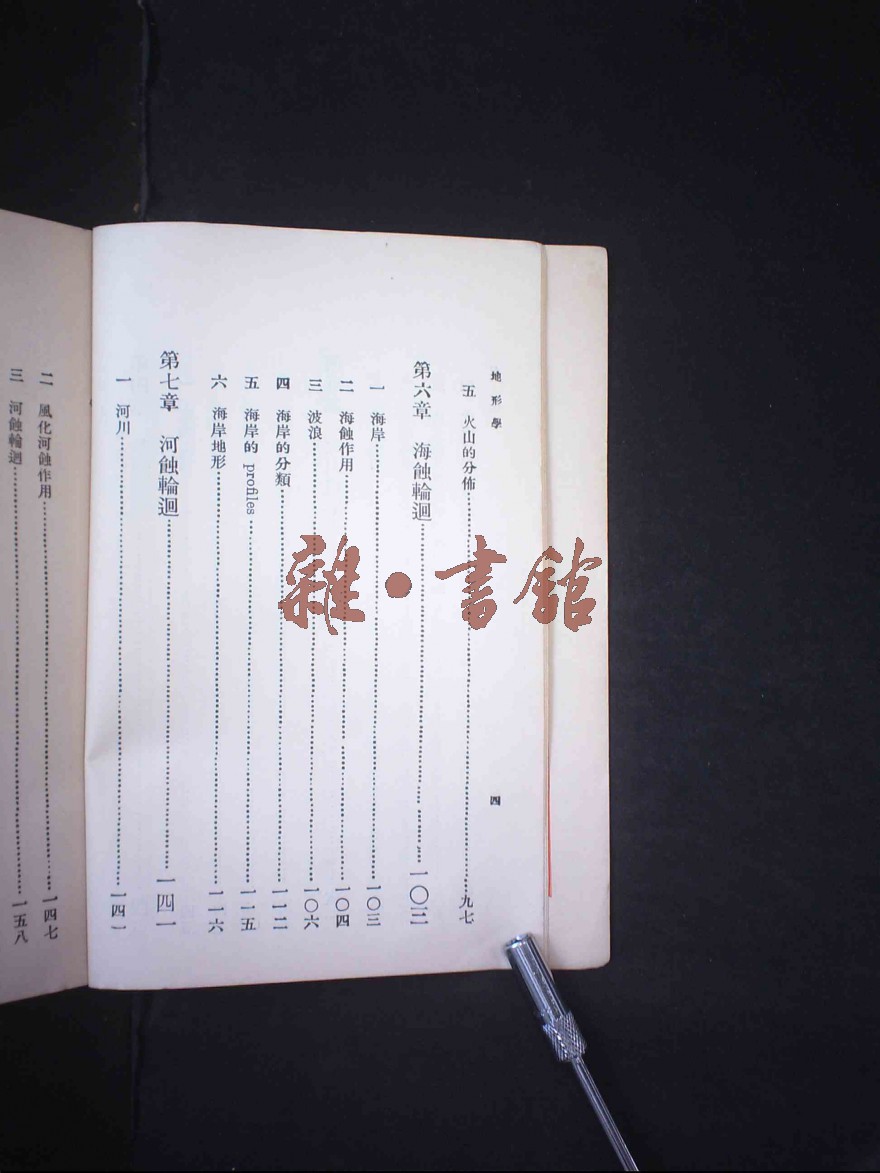 地形學
四
五 火山的分佈 九七
第六章 海蝕輪迴 一〇三
一 海岸 一〇三
二 海蝕作用 一〇四
三 波浪 一〇六
四 海岸的分類 一一二
五 海岸的 profiles 一一五
六 海岸地形 一一六
第七章 河蝕輪迴 一四一
一 河川 一四一
二 風化河蝕作用 一四七
三 河蝕輪迴 一五八
雜·書館